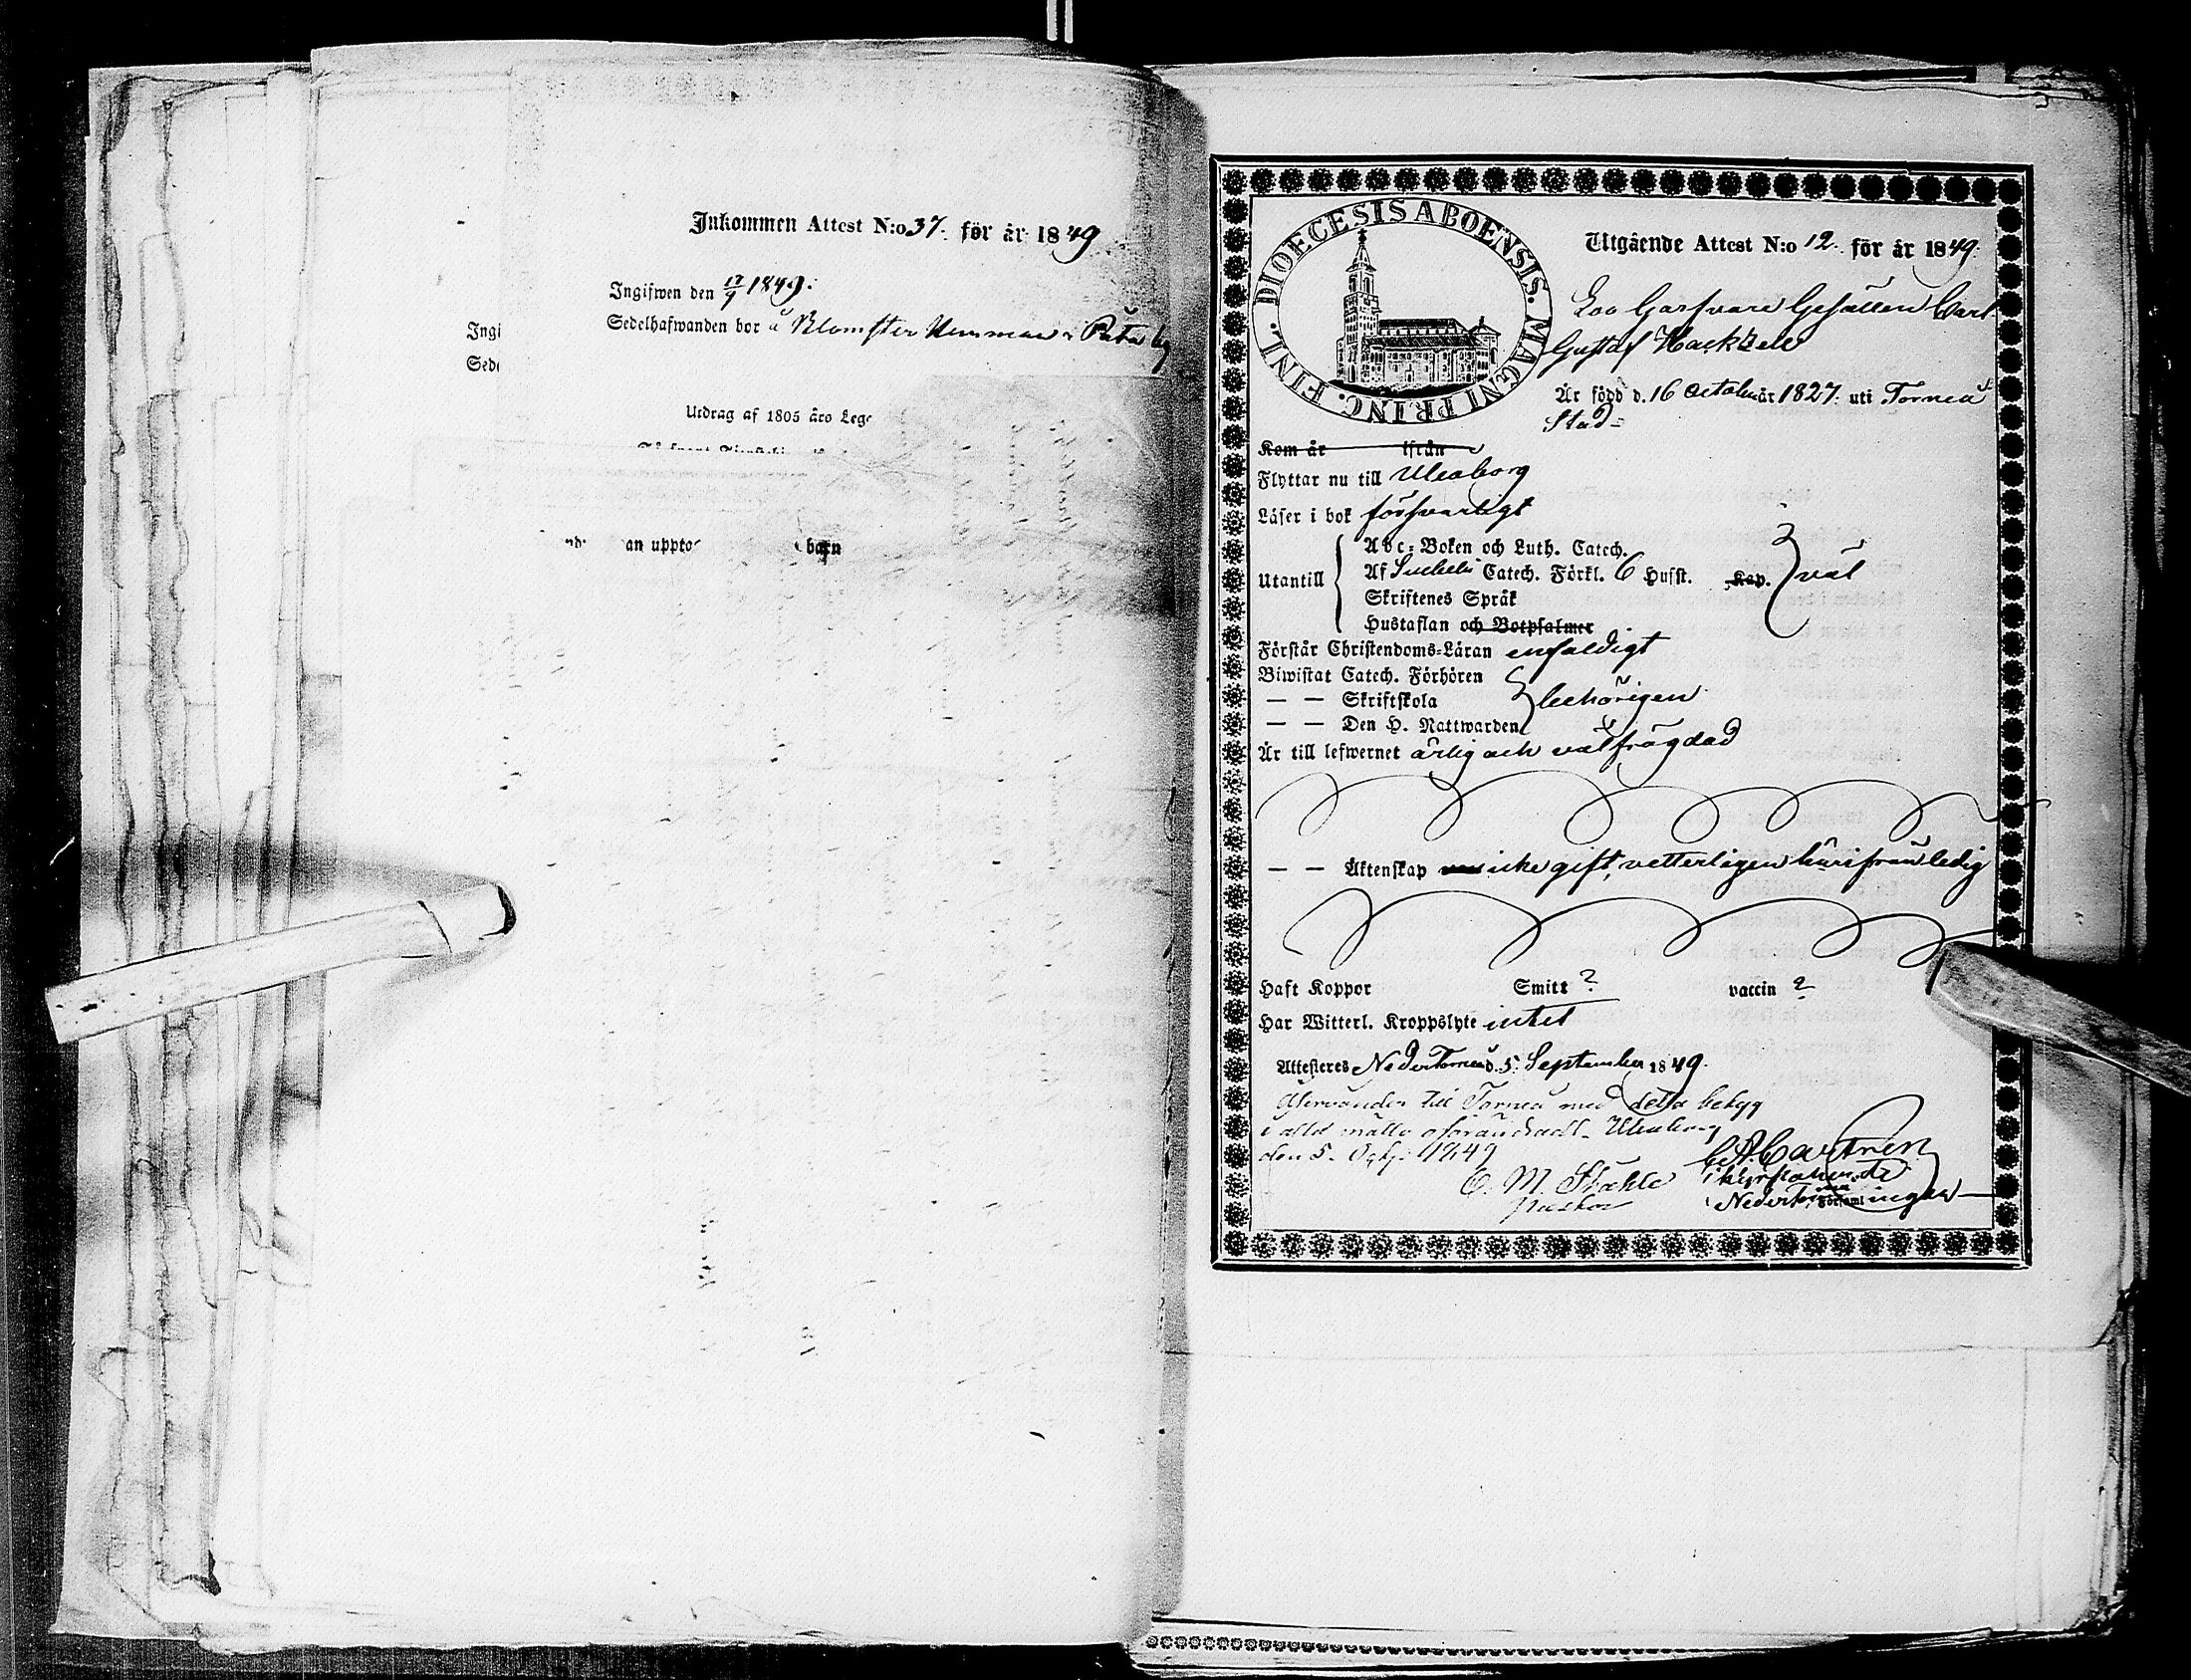 Inkommen Attest N:o 37. för år 1849
Ingifwen den 17/9 1849.
Sedelhafwanden bor å Blomster Hemman i Pateby
Ingi
Sede
Utdrag af 1805 års Lege
an uppto barn
DIOECESIS ABOENSIS. MAGNI PRINC. FINL.
Utgående Attest N:o 12. för år 1849.
Loo Garfvare Gesällen Carl
Gustaf Hackzell
Är född d. 16 October år 1827. uti Torneå
Stad
Kom år ifrån
Flyttar nu till Uleaborg
Läser i bok försvarligt
Utantill
Abc-Boken och Luth. Catech.
Af Svebelii Catech. Förkl. 6 Hufst. Kap. väl
Skriftenes Språk
Hustaflan och Botpsalmer
Förstår Christendoms-Läran enfaldigt
Biwistat Catech. Förhören
— — Skriftskola behörigen
— — Den H. Nattwarden
Är till lefwernet ärlig och välfrägdad
— — Äktenskap icke gift, vetterligen härifrån ledig
Haft Koppor Smitt ? vaccin ?
Har Witterl. Kroppslyte intet
Attesteres NederTorneå d. 5. September 1849.
Återvänder till Torneå med detta betyg
i alld måtto oförändradt. Uleaborg
den 5. 1849
C. M. Ståhle
C. A. Castrén
Nedertorneå Församlingen